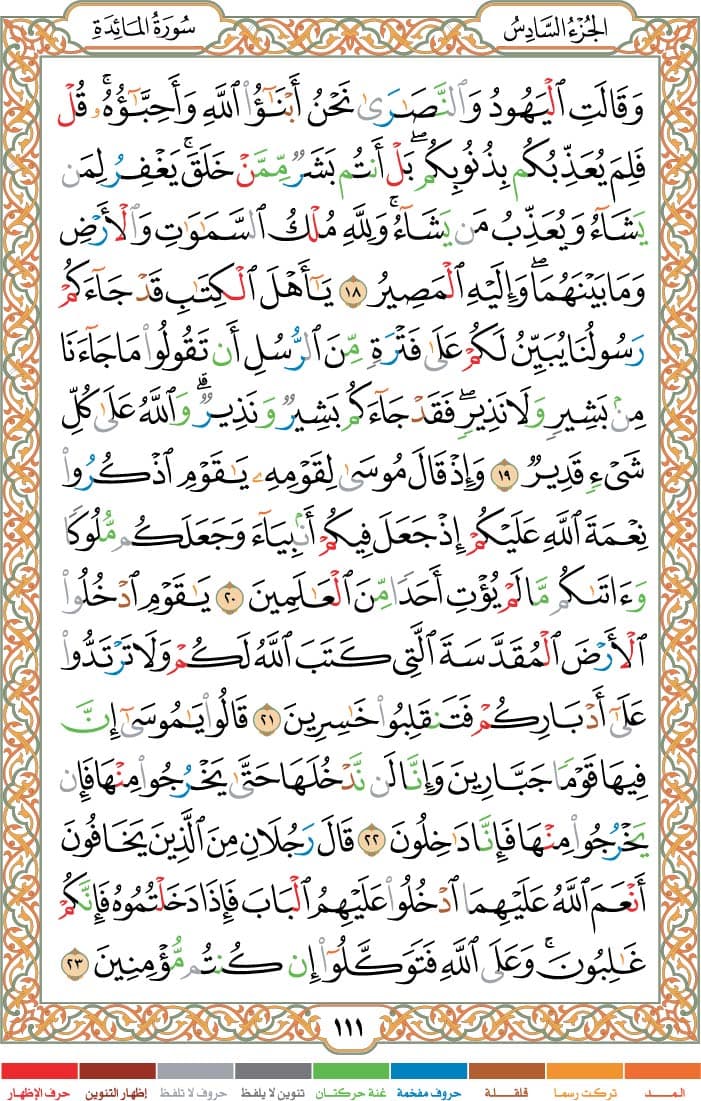 الجُزْءُ السَّادِسُ
سُورَةُ المَائِدَةِ
وَقَالَتِ ٱلْيَهُودُ وَٱلنَّصَٰرَىٰ نَحْنُ أَبْنَٰٓؤُا۟ ٱللَّهِ وَأَحِبَّٰٓؤُهُۥ ۚ قُلْ
فَلِمَ يُعَذِّبُكُم بِذُنُوبِكُم ۖ بَلْ أَنتُم بَشَرٌ مِّمَّنْ خَلَقَ ۚ يَغْفِرُ لِمَن
يَشَآءُ وَيُعَذِّبُ مَن يَشَآءُ ۚ وَلِلَّهِ مُلْكُ ٱلسَّمَٰوَٰتِ وَٱلْأَرْضِ
وَمَا بَيْنَهُمَا ۖ وَإِلَيْهِ ٱلْمَصِيرُ ١٨ يَٰٓأَهْلَ ٱلْكِتَٰبِ قَدْ جَآءَكُمْ
رَسُولُنَا يُبَيِّنُ لَكُمْ عَلَىٰ فَتْرَةٍ مِّنَ ٱلرُّسُلِ أَن تَقُولُوا۟ مَا جَآءَنَا
مِنۢ بَشِيرٍ وَلَا نَذِيرٍ ۖ فَقَدْ جَآءَكُم بَشِيرٌ وَنَذِيرٌ ۗ وَٱللَّهُ عَلَىٰ كُلِّ
شَىْءٍ قَدِيرٌ ١٩ وَإِذْ قَالَ مُوسَىٰ لِقَوْمِهِۦ يَٰقَوْمِ ٱذْكُرُوا۟
نِعْمَةَ ٱللَّهِ عَلَيْكُمْ إِذْ جَعَلَ فِيكُمْ أَنۢبِيَآءَ وَجَعَلَكُم مُّلُوكًا
وَءَاتَىٰكُم مَّا لَمْ يُؤْتِ أَحَدًا مِّنَ ٱلْعَٰلَمِينَ ٢٠ يَٰقَوْمِ ٱدْخُلُوا۟
ٱلْأَرْضَ ٱلْمُقَدَّسَةَ ٱلَّتِى كَتَبَ ٱللَّهُ لَكُمْ وَلَا تَرْتَدُّوا۟
عَلَىٰٓ أَدْبَارِكُمْ فَتَنقَلِبُوا۟ خَٰسِرِينَ ٢١ قَالُوا۟ يَٰمُوسَىٰٓ إِنَّ
فِيهَا قَوْمًا جَبَّارِينَ وَإِنَّا لَن نَّدْخُلَهَا حَتَّىٰ يَخْرُجُوا۟ مِنْهَا فَإِن
يَخْرُجُوا۟ مِنْهَا فَإِنَّا دَٰخِلُونَ ٢٢ قَالَ رَجُلَانِ مِنَ ٱلَّذِينَ يَخَافُونَ
أَنْعَمَ ٱللَّهُ عَلَيْهِمَا ٱدْخُلُوا۟ عَلَيْهِمُ ٱلْبَابَ فَإِذَا دَخَلْتُمُوهُ فَإِنَّكُمْ
غَٰلِبُونَ ۚ وَعَلَى ٱللَّهِ فَتَوَكَّلُوٓا۟ إِن كُنتُم مُّؤْمِنِينَ ٢٣
١١١
المــد تركت رسما قلقلة حروف مفخمة غنة حركتان تنوين لا يلفظ حروف لا تلفظ إظهار التنوين حرف الإظهار